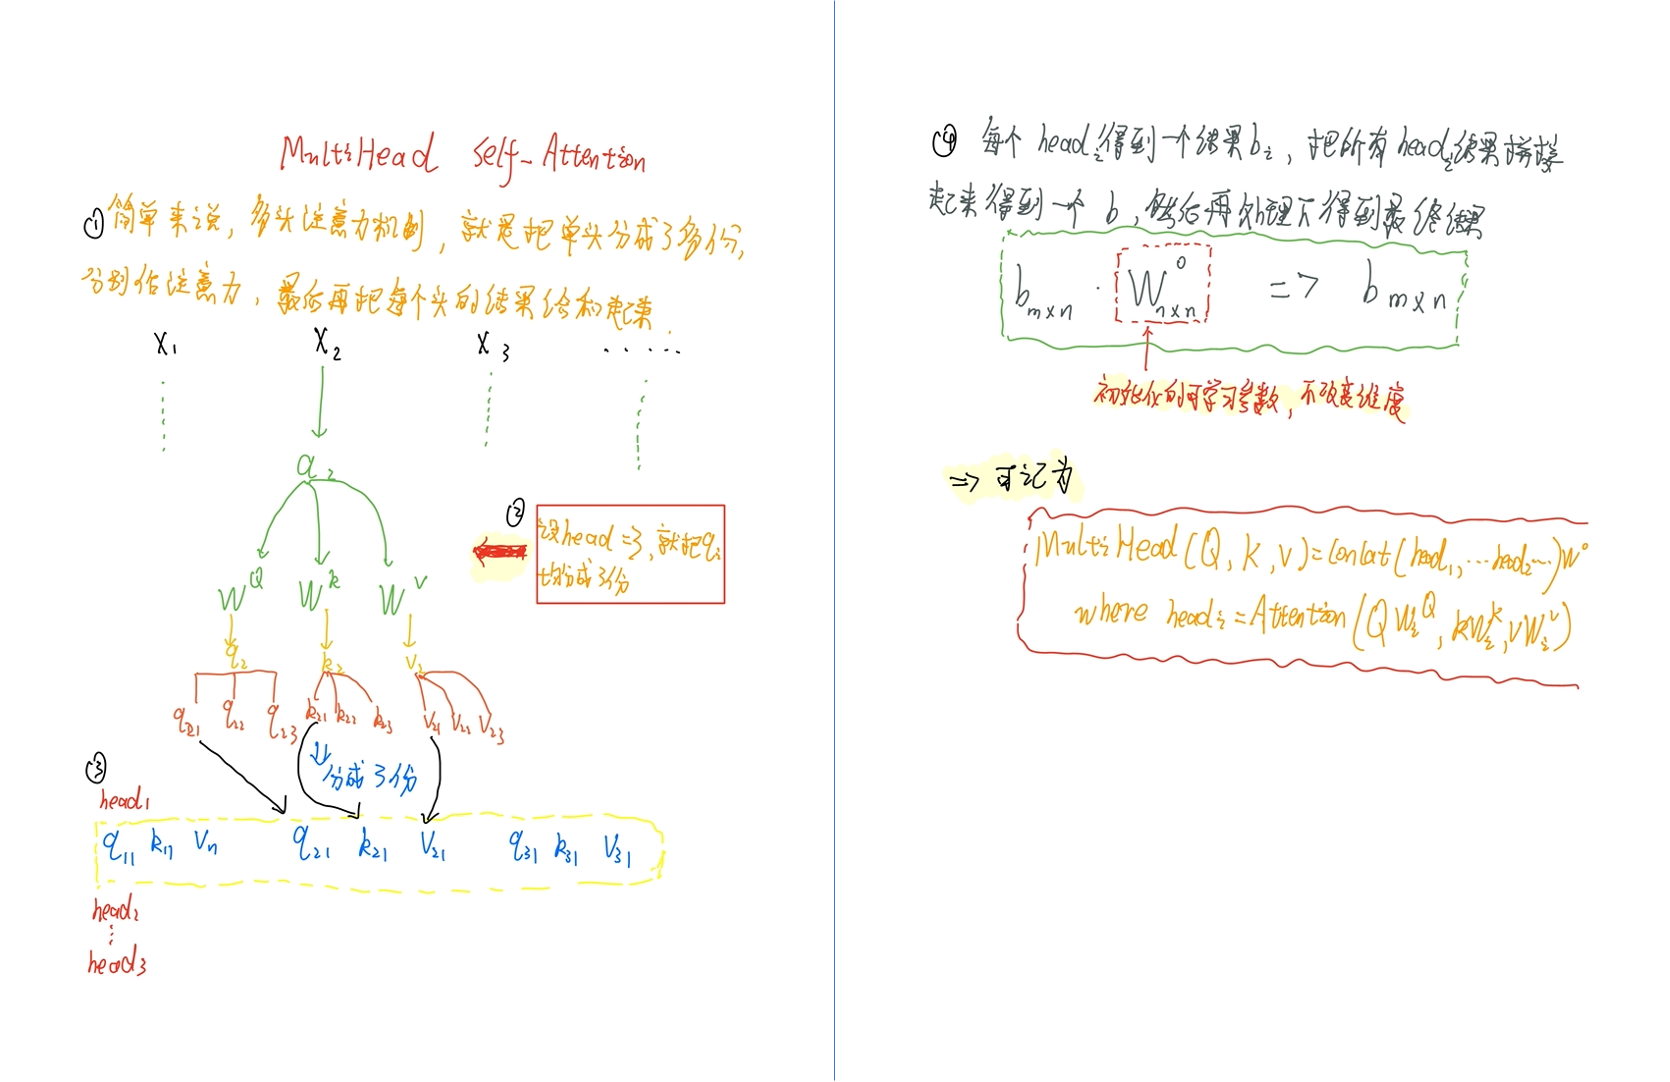 MultiHead Self-Attention
① 简单来说，多头注意力机制，就是把单头分成了多份，
分别作注意力，最后再把每个头的结果综合起来.
X₁ X₂ X₃ ......
a₂
W^Q W^k W^v
② 设head=3，就把qᵢ
均分成3份
q₂ k₂ v₂
q₂₁ q₂₂ q₂₃ k₂₁ k₂₂ k₂₃ v₂₁ v₂₂ v₂₃
⇓ 分成3份
③
head₁
q₁₁ k₁₁ v₁₁ q₂₁ k₂₁ v₂₁ q₃₁ k₃₁ v₃₁
head₂
⋮
head₃
④ 每个headᵢ得到一个结果bᵢ，把所有headᵢ结果拼接
起来得到一个b，然后再处理下得到最终结果
b_{m×n} · W^o_{n×n} => b_{m×n}
初始化的可学习参数，不改变维度
=> 可记为
MultiHead(Q, K, V)=Concat(head₁, ...headᵢ...)W^o
where headᵢ=Attention(QWᵢ^Q, KWᵢ^k, VWᵢ^v)